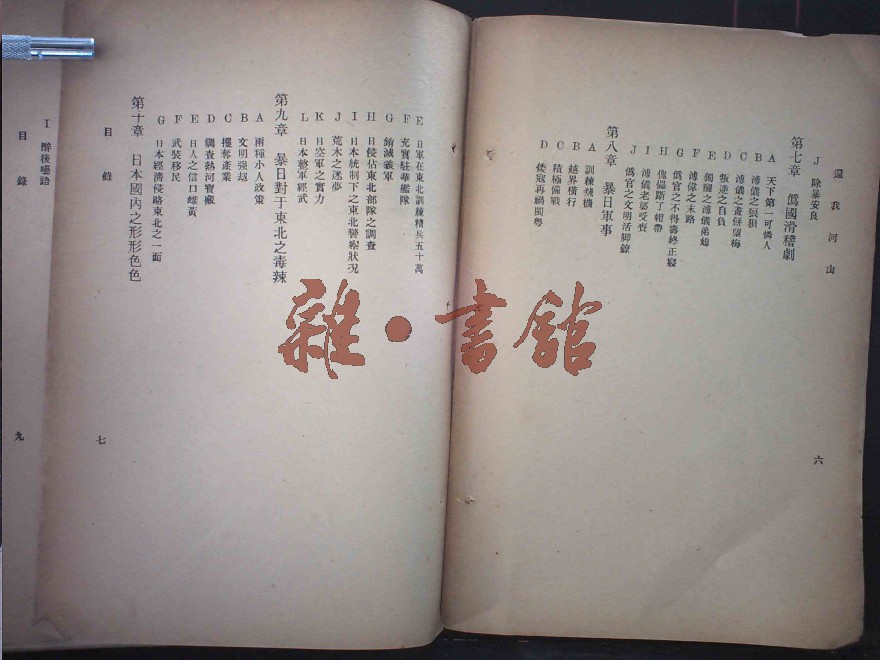 還我河山
J 除暴良安
第七章 僞國滑稽劇
A 天下第一可憐人
B 溥儀之狼狽
C 溥儀之畫餅望梅
D 叛逆之自負
E 獨醒之溥儀弟媳
F 溥偉之末路
G 僞官之不得壽終正寢
H 傀儡斷了褲帶
I 溥儀老婆受查
J 僞官之文明活脚鐐
第八章 暴日軍事
A 訓練飛機
B 越界橫行
C 積極備戰
D 倭寇再禍閩粤
六
E 日軍在東北訓練精兵五十萬
F 充實駐華艦隊
G 銷滅義軍
H 日侵佔東北部隊之調查
I 日本統制下之東北警察狀况
J 荒木之迷夢
K 日空軍之實力
L 日本整軍經武
第九章 暴日對于東北之毒辣
A 兩種小人政策
B 文明强刼
C 攫奪產業
D 調查熱河寶藏
E 日人之信口雌黃
F 武裝移民
G 日本經濟侵略東北之一面
第十章 日本國內之形形色色
目錄
七
I 醉後囈語
目錄
九
雜·書館